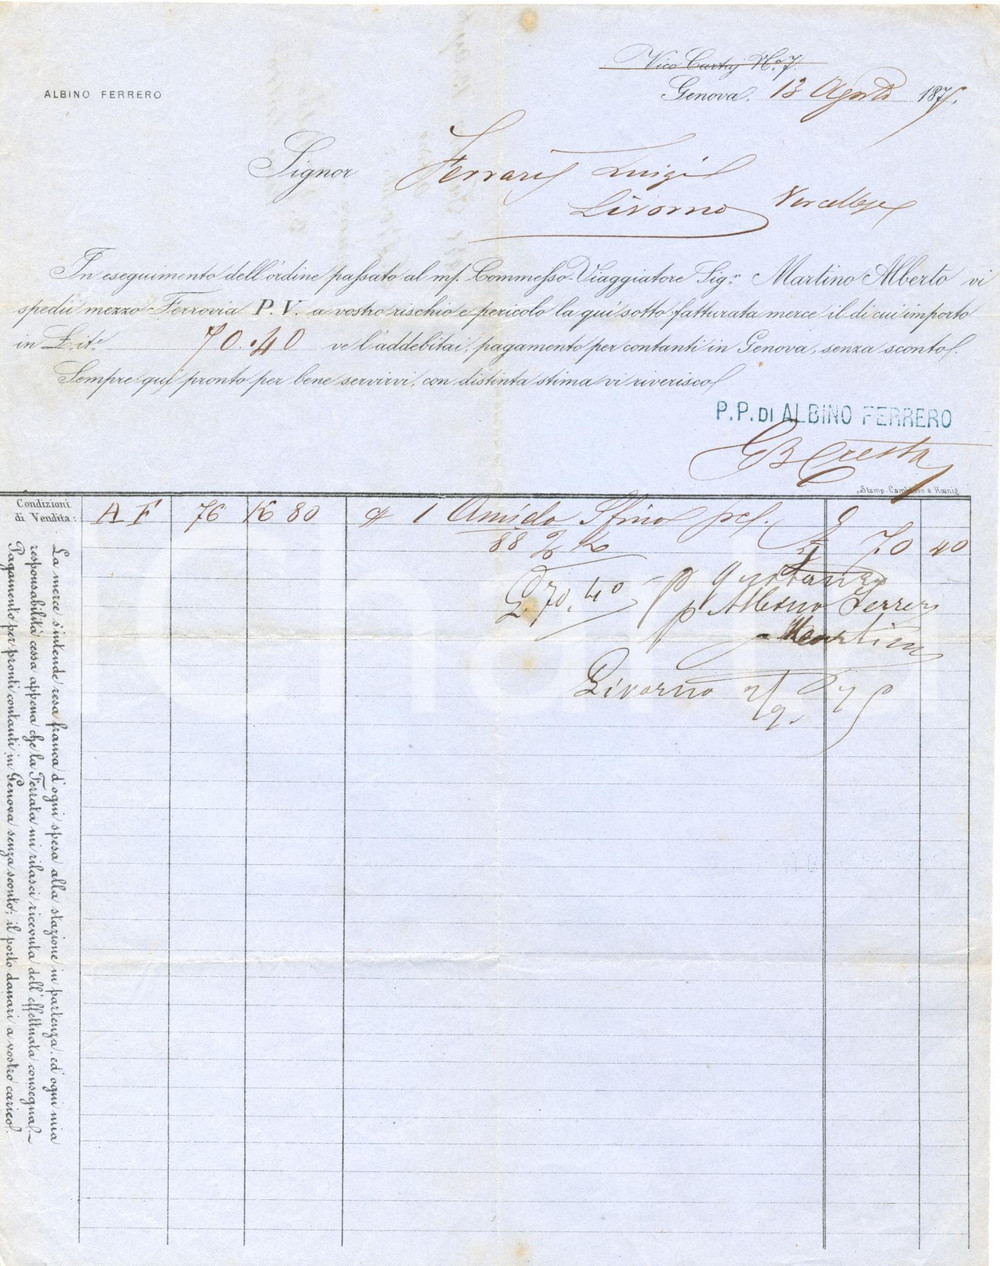 ALBINO FERRERO
Vico Cartaj N.º 7.
Genova, 13 Agosto 1875.
Signor Ferraris Luigi
Livorno Vercellese
In eseguimento dell'ordine passato al m/. Commesso-Viaggiatore Sig.r Martino Alberto vi
spedii mezzo Ferrovia P. V. a vostro rischio e pericolo la qui sotto fatturata merce il di cui importo
in L. it.e 70.40 ve l'addebitai, pagamento per contanti in Genova, senza sconto.
Sempre qui pronto per bene servirvi, con distinta stima vi riverisco
P.P. DI ALBINO FERRERO
GB Cresta
Stamp. Cambiaso e Hœnig
Condizioni
di Vendita:
AF 76 K 80 1 Amido Sfino 70 40
88
L. 70.40 p quitanza
p Albino Ferrero
Livorno 2/9. 75
La merce s'intende resa franca d'ogni spesa alla stazione in partenza, ed ogni mia
responsabilità cessa appena che la Ferrata mi rilasci ricevuta dell'effettuata consegna.
Pagamento per pronti contanti in Genova senza sconto; il porto danari a vostro carico.